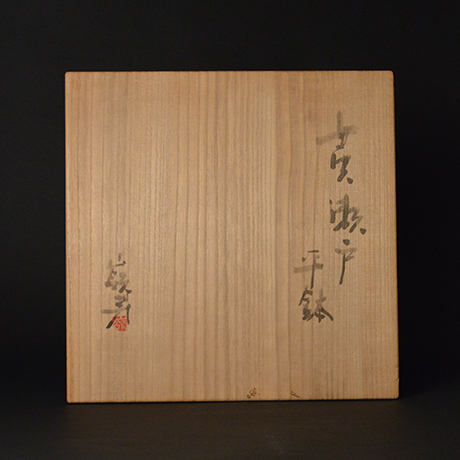 黄瀬戸
平鉢